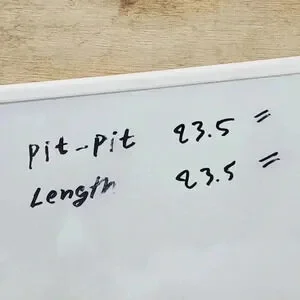 Pit-Pit 23.5 "
Length 23.5 "